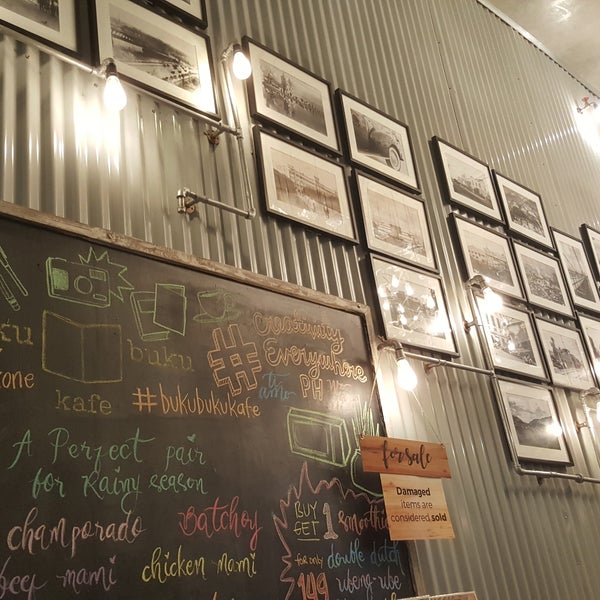 buku
kafe
#bukubukukafe
#
creativity
Everywhere
PH
A Perfect pair
for Rainy season
champorado
Batchoy
beef mami
chicken mami
BUY 1
GET 1
smoothie
for only
149
double dutch
ubeng-ube
for sale
Damaged
items are
considered sold